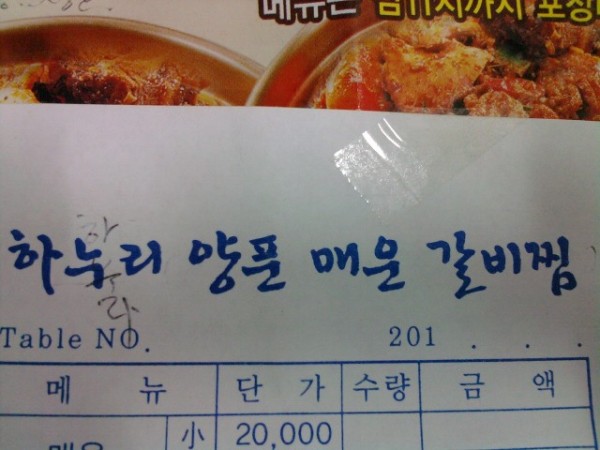 메뉴는
포장
하누리 양푼 매운 갈비찜
하
누
라
Table NO.
201 . . .
메 뉴 단 가 수량 금 액
매운 小 20,000